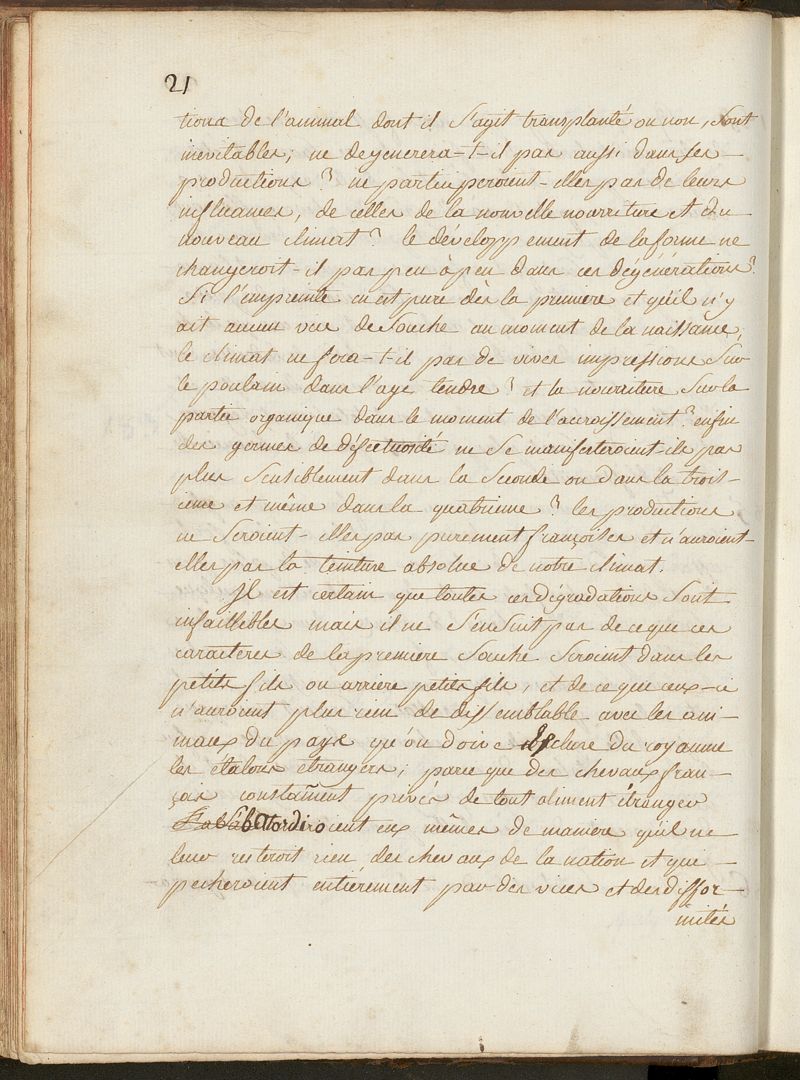 21
tions de l'animal dont il s'agit transplanté ou non, sont
inevitables; ne degenerera-t-il pas aussi dans ses
productions? ne participeroient-elles pas de leurs
influances, de celles de la nouvelle nourriture et du
nouveau climat? le développement de la forme ne
changeroit-il pas peu à peu dans ces dégénérations?
Si l'empreinte en est pure dès la premiere et qu'il n'y
ait aucun vice de Souche au moment de la naissance,
le climat ne fera-t-il pas de vives impressions Sur
le poulain dans l'age tendre? et la nourriture Sur la
partie organique dans le moment de l'accroissement? enfin
des germes de déféctuosité ne Se manifesteroient ils pas
plus Sensiblement dans la Seconde ou dans la trois-
ieme et même dans la quatrieme? les productions
ne Seroient-elles pas purement françoises et n'auroient-
elles pas la teinture absolue de notre climat.
Il est certain que toutes ces dégradations Sont
infaillibles mais il ne S'ensuit pas de ce que ces
caracteres de la premiere Souche Seroient dans les
petits fils ou arriere petits fils, et de ce que ceux-ci
n'auroient plus rien de dissemblable avec les ani-
maux du pays qu'on doive exclure du royaume
les étalons etrangers; parce que des chevaux fran-
çois constam̃ent privés de tout aliment étranger
S'abatardiroient eux mêmes de maniere qu'il ne
leur resteroit rien des chevaux de la nation et que
pecheroient entiérement par des vices et des diffor-
mités